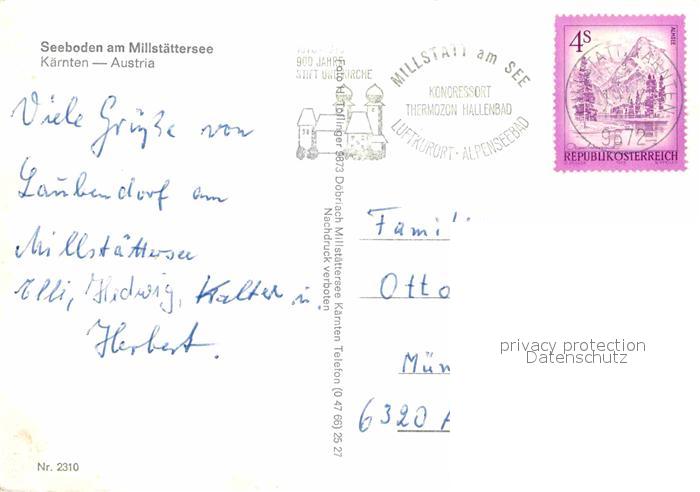 Seeboden am Millstättersee
Kärnten — Austria
Viele Grüße von
Laubendorf am
Millstättersee
Elli, Hedwig, Walter u.
Herbert.
Nr. 2310
900 JAHRE
STIFT UND KIRCHE
MILLSTATT am SEE
KONGRESSORT
THERMOZON HALLENBAD
LUFTKURORT · ALPENSEEBAD
Foto H. Tollinger 9873 Döbriach Millstättersee Kärnten Telefon (0 47 66) 25 27
Nachdruck verboten
4S
ALMSEE
9872
REPUBLIK ÖSTERREICH
Fami
Otto
Mün
6320 A
privacy protection
Datenschutz